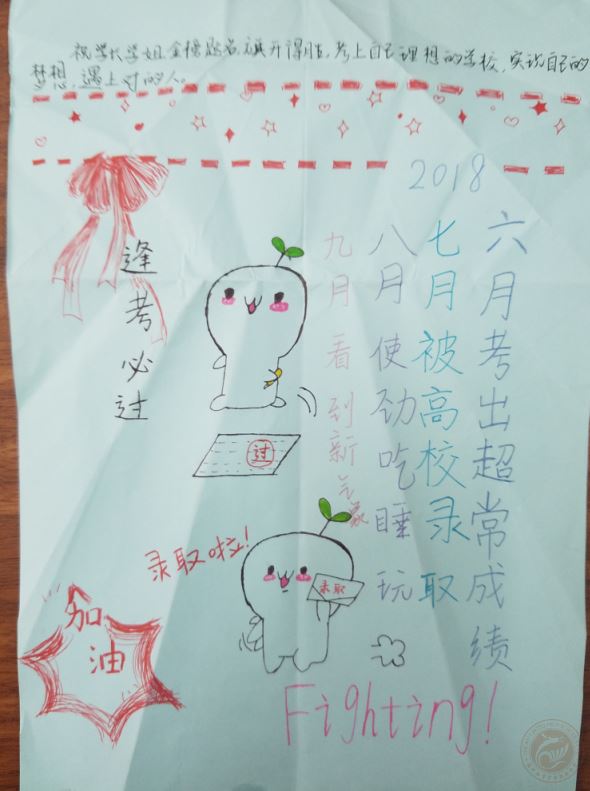 祝学长学姐金榜题名,旗开得胜,考上自己理想的学校,实现自己的
梦想,遇上对的人。
2018
六月考出超常成绩
七月被高校录取
八月使劲吃睡玩
九月看到新气象
逢考必过
过
录取啦!
录取
加油
Fighting!